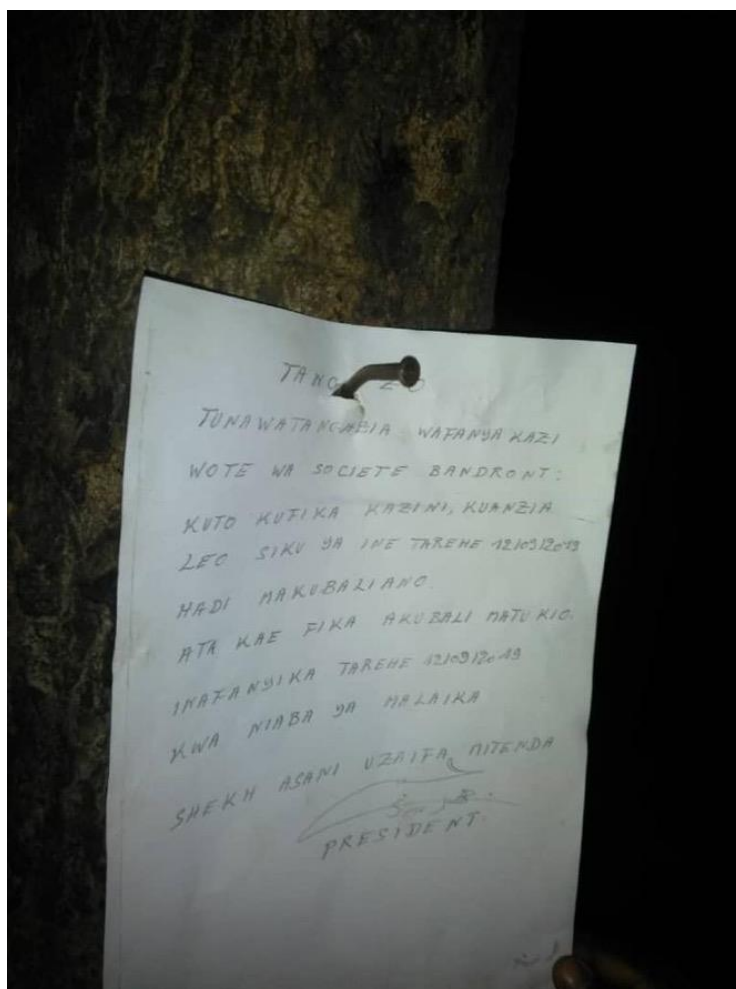 TANG ZO
TUNAWATANGAZIA WAFANYA KAZI
WOTE WA SOCIETE BANDRONT:
KUTO KUFIKA KAZINI, KUANZIA
LEO SIKU YA INE TAREHE 12/09/2019
HADI MAKUBALIANO.
ATA KAE FIKA AKUBALI MATUKIO.
INAFANYIKA TAREHE 12/09/2019
KWA NIABA YA MALAIKA
SHEKH ASANI UZAIFA MITENDA
PRESIDENT.